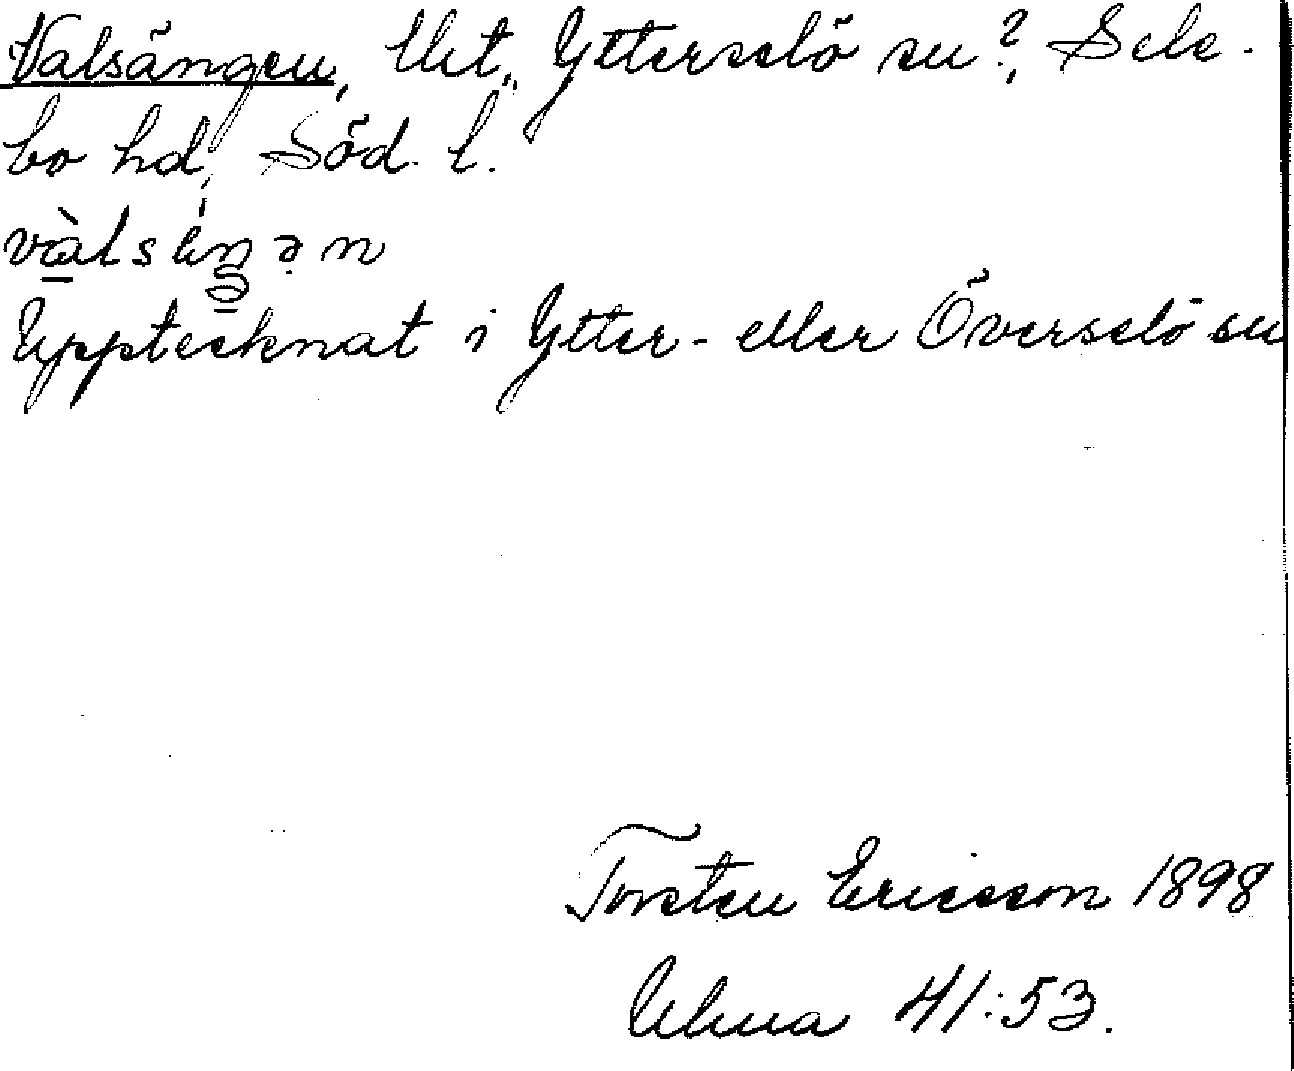 Valsängen, Utt., Ytterselö sn?, Sele-
bo hd, Söd. l.
Upptecknat i Ytter- eller Överselö sn
Torsten Ericsson 1898
Ulma 41:53.